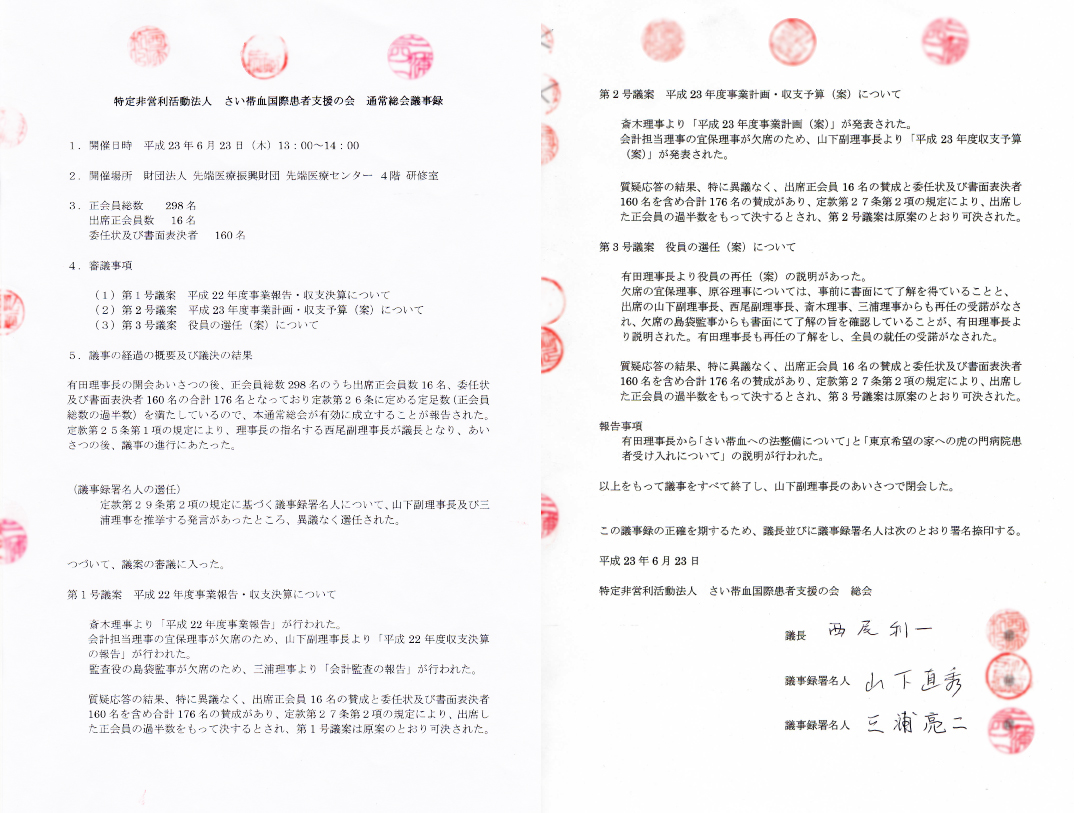 特定非営利活動法人　さい帯血国際患者支援の会　通常総会議事録
１．開催日時　平成23年6月23日（木）13：00～14：00
２．開催場所　財団法人 先端医療振興財団 先端医療センター ４階 研修室
３．正会員総数　　298名
出席正会員数　　16名
委任状及び書面表決者　　160名
４．審議事項
（１）第１号議案　平成22年度事業報告・収支決算について
（２）第２号議案　平成23年度事業計画・収支予算（案）について
（３）第３号議案　役員の選任（案）について
５．議事の経過の概要及び議決の結果
有田理事長の開会あいさつの後、正会員総数298名のうち出席正会員数16名、委任状
及び書面表決者160名の合計176名となっており定款第２６条に定める定足数（正会員
総数の過半数）を満たしているので、本通常総会が有効に成立することが報告された。
定款第２５条第１項の規定により、理事長の指名する西尾副理事長が議長となり、あい
さつの後、議事の進行にあたった。
（議事録署名人の選任）
定款第２９条第２項の規定に基づく議事録署名人について、山下副理事長及び三
浦理事を推挙する発言があったところ、異議なく選任された。
つづいて、議案の審議に入った。
第１号議案　平成22年度事業報告・収支決算について
斎木理事より「平成22年度事業報告」が行われた。
会計担当理事の宜保理事が欠席のため、山下副理事長より「平成22年度収支決算
の報告」が行われた。
監査役の島袋監事が欠席のため、三浦理事より「会計監査の報告」が行われた。
質疑応答の結果、特に異議なく、出席正会員16名の賛成と委任状及び書面表決者
160名を含め合計176名の賛成があり、定款第２７条第２項の規定により、出席し
た正会員の過半数をもって決するとされ、第１号議案は原案のとおり可決された。
第２号議案　平成23年度事業計画・収支予算（案）について
斎木理事より「平成23年度事業計画（案）」が発表された。
会計担当理事の宜保理事が欠席のため、山下副理事長より「平成23年度収支予算
（案）」が発表された。
質疑応答の結果、特に異議なく、出席正会員16名の賛成と委任状及び書面表決者
160名を含め合計176名の賛成があり、定款第２７条第２項の規定により、出席し
た正会員の過半数をもって決するとされ、第２号議案は原案のとおり可決された。
第３号議案　役員の選任（案）について
有田理事長より役員の再任（案）の説明があった。
欠席の宜保理事、原谷理事については、事前に書面にて了解を得ていることと、
出席の山下副理事長、西尾副理事長、斎木理事、三浦理事からも再任の受諾がなさ
れ、欠席の島袋監事からも書面にて了解の旨を確認していることが、有田理事長よ
り説明された。有田理事長も再任の了解をし、全員の就任の受諾がなされた。
質疑応答の結果、特に異議なく、出席正会員16名の賛成と委任状及び書面表決者
160名を含め合計176名の賛成があり、定款第２７条第２項の規定により、出席し
た正会員の過半数をもって決するとされ、第３号議案は原案のとおり可決された。
報告事項
有田理事長から「さい帯血への法整備について」と「東京希望の家への虎の門病院患
者受け入れについて」の説明が行われた。
以上をもって議事をすべて終了し、山下副理事長のあいさつで閉会した。
この議事録の正確を期するため、議長並びに議事録署名人は次のとおり署名捺印する。
平成23年6月23日
特定非営利活動法人　さい帯血国際患者支援の会　総会
議長　西尾利一
議事録署名人　山下直秀
議事録署名人　三浦亮二